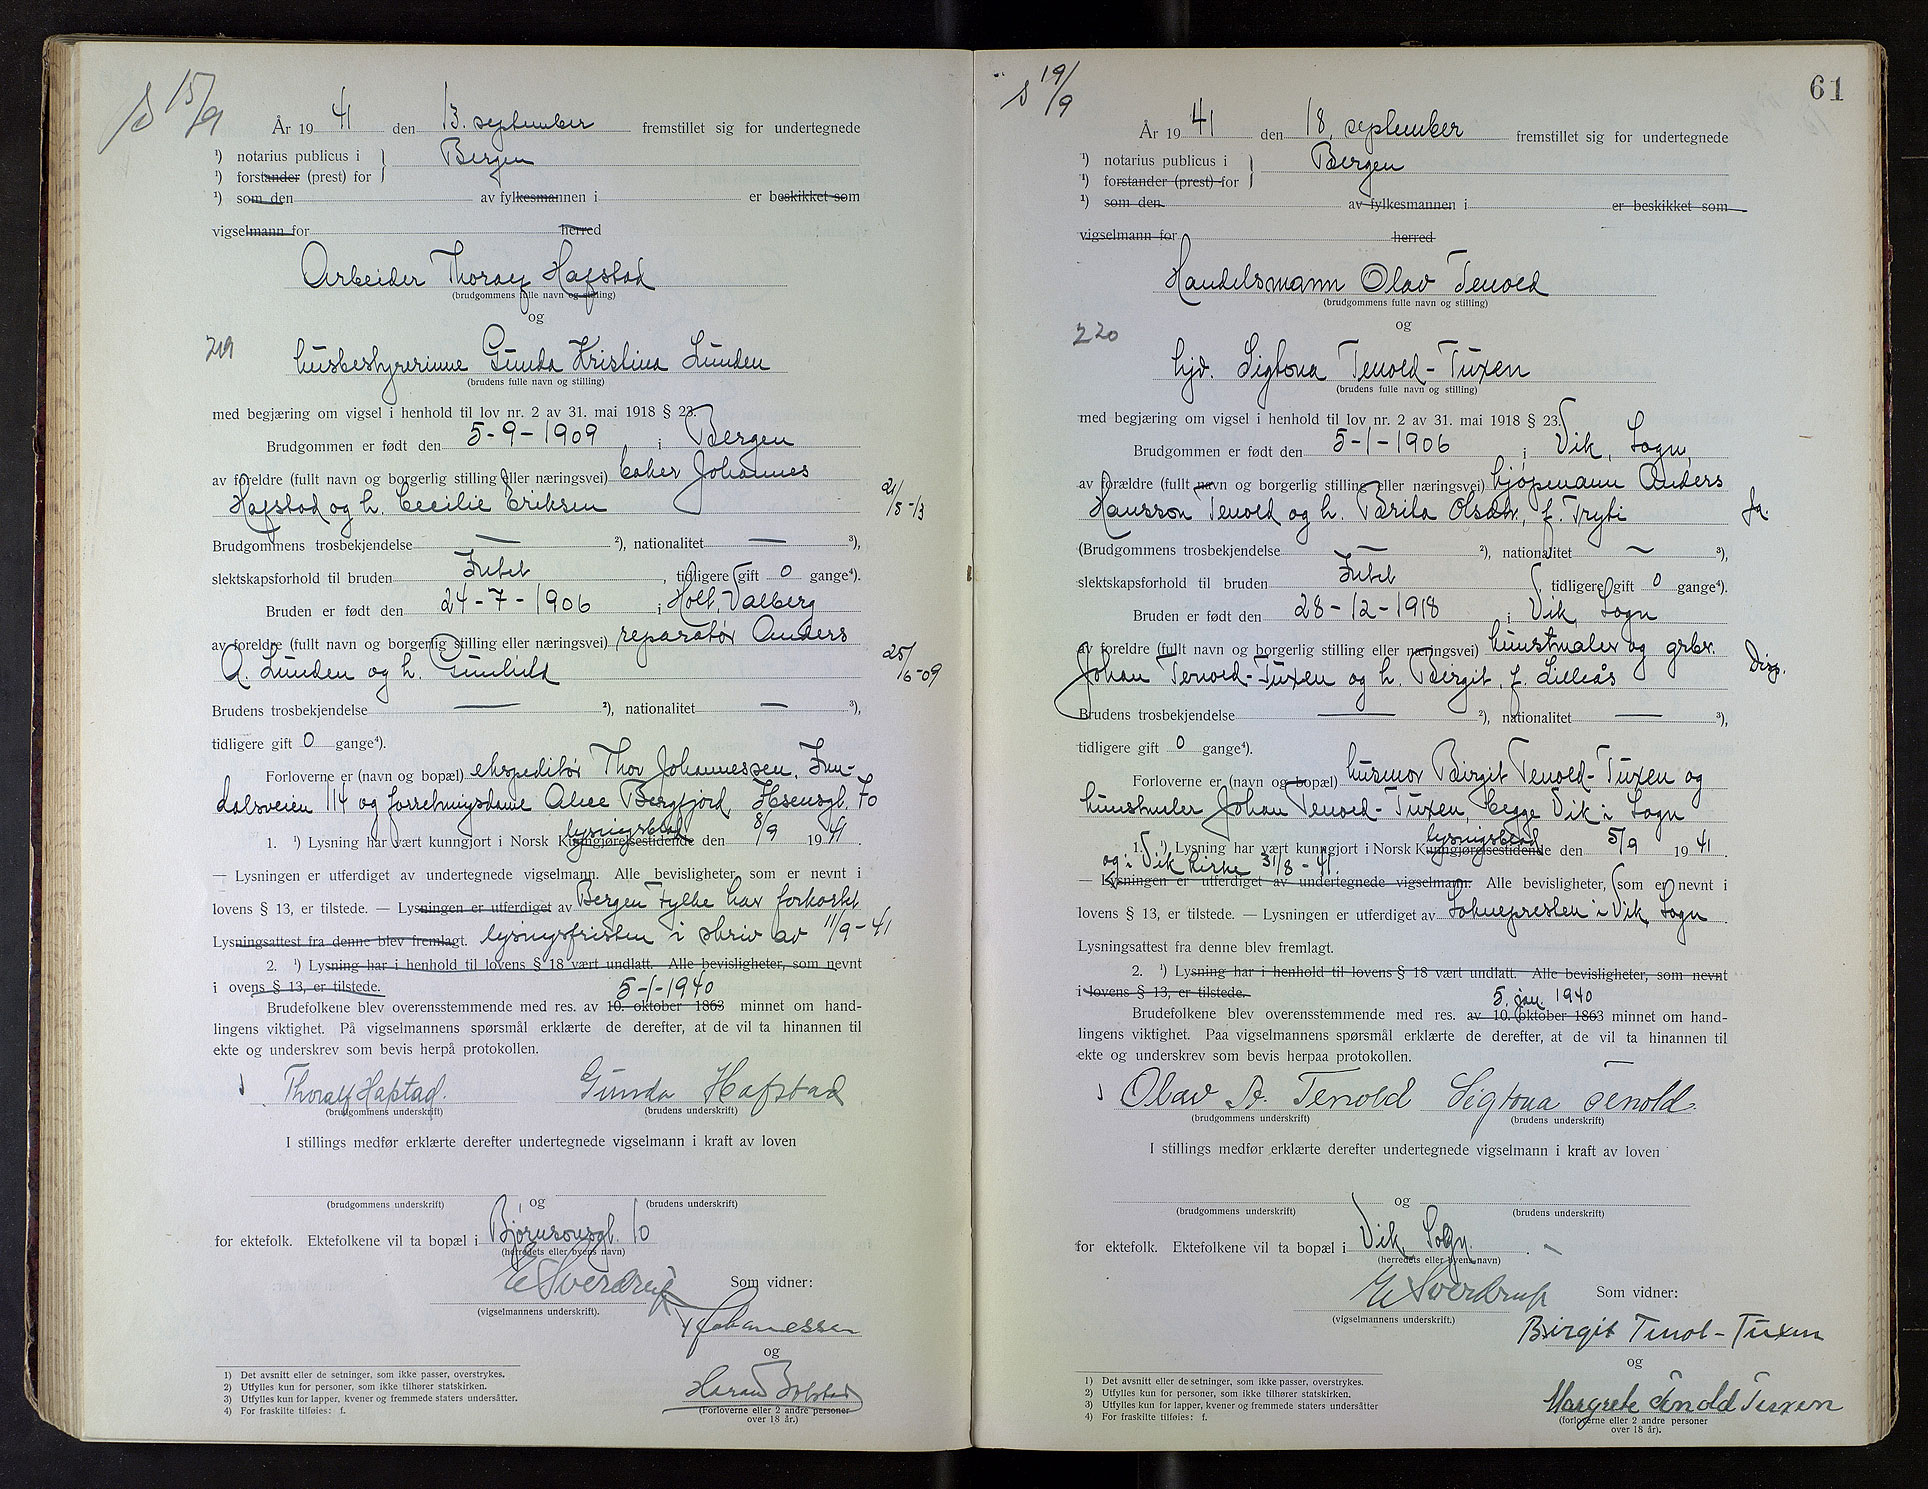 S 15/9
År 1941 den 13. september fremstillet sig for undertegnede
¹) notarius publicus i Bergen
¹) forstander (prest) for
¹) som den av fylkesmannen i er beskikket som
vigselmann for herred
Arbeider Thoralf Hafstad
(brudgommens fulle navn og stilling)
og
219
husbestyrerinne Gunda Kristina Lunden
(brudens fulle navn og stilling)
med begjæring om vigsel i henhold til lov nr. 2 av 31. mai 1918 § 23.
Brudgommen er født den 5-9-1909 i Bergen
av foreldre (fullt navn og borgerlig stilling eller næringsvei) baker Johannes
Hafstad og h. Cecilie Eriksen 21/8-13
Brudgommens trosbekjendelse — ²), nationalitet — ³),
slektskapsforhold til bruden Intet, tidligere gift 0 gange⁴).
Bruden er født den 24-7-1906 i Holt, Valberg
av foreldre (fullt navn og borgerlig stilling eller næringsvei) reparatør Anders
A. Lunden og h. Gunhild 25/6-09
Brudens trosbekjendelse — ²), nationalitet — ³),
tidligere gift 0 gange⁴).
Forloverne er (navn og bopæl) ekspeditør Thor Johannessen,
dalsveien 114 og forretningsdame Alice Bergfjord, Ibsensgt. 70
lysningsblad
1. ¹) Lysning har vært kunngjort i Norsk Kunngjørelsestidende den 8/9 1941.
— Lysningen er utferdiget av undertegnede vigselmann. Alle bevisligheter, som er nevnt i
lovens § 13, er tilstede. — Lysningen er utferdiget av Bergen Fylke har forkortet
Lysningsattest fra denne blev fremlagt. lysningsfristen i skriv av 11/9-41
2. ¹) Lysning har i henhold til lovens § 18 vært undlatt. Alle bevisligheter, som nevnt
i ovens § 13, er tilstede. 5-1-1940
Brudefolkene blev overensstemmende med res. av 10. oktober 1863 minnet om hand-
lingens viktighet. På vigselmannens spørsmål erklærte de derefter, at de vil ta hinannen til
ekte og underskrev som bevis herpå protokollen.
Thoralf Hafstad. Gunda Hafstad
(brudgommens underskrift) (brudens underskrift)
I stillings medfør erklærte derefter undertegnede vigselmann i kraft av loven
og
(brudgommens underskrift) (brudens underskrift)
for ektefolk. Ektefolkene vil ta bopæl i Bjørnsonsgt. 10
(herredets eller byens navn)
E Sverdrup Som vidner:
(vigselmannens underskrift).
Johannessen
og
(Forloverne eller 2 andre personer
over 18 år.)
1) Det avsnitt eller de setninger, som ikke passer, overstrykes.
2) Utfylles kun for personer, som ikke tilhører statskirken.
3) Utfylles kun for lapper, kvener og fremmede staters undersåtter.
4) For fraskilte tilføies: f.
S 19/9
61
År 1941 den 18. september fremstillet sig for undertegnede
¹) notarius publicus i Bergen
¹) forstander (prest) for
¹) som den av fylkesmannen i er beskikket som
vigselmann for herred
Handelsmann Olav Tenold
(brudgommens fulle navn og stilling)
og
220
hjv. Sigtona Tenold-Tuxen
(brudens fulle navn og stilling)
med begjæring om vigsel i henhold til lov nr. 2 av 31. mai 1918 § 23.
Brudgommen er født den 5-1-1906 i Vik, Sogn,
av forældre (fullt navn og borgerlig stilling eller næringsvei) kjøpmann Anders
Hansson Tenold og h. Brita Olsdtr, f. Tryti Ja.
(Brudgommens trosbekjendelse — ²), nationalitet — ³),
slektskapsforhold til bruden Intet tidligere gift 0 gange⁴).
Bruden er født den 28-12-1918 i Vik, Sogn
av foreldre (fullt navn og borgerlig stilling eller næringsvei) kunstmaler og grbr.
Johan Tenold-Tuxen og h. Birgit, f. Lilleås Disp.
Brudens trosbekjendelse — ²), nationalitet — ³),
tidligere gift 0 gange⁴).
Forloverne er (navn og bopæl) husmor Birgit Tenold-Tuxen og
kunstmaler Johan Tenold-Tuxen, begge Vik i Sogn
lysningsblad
1. ¹) Lysning har vært kunngjort i Norsk Kunngjørelsestidende den 5/9 1941.
og i Vik kirke 31/8-41.
— Lysningen er utferdiget av undertegnede vigselmann. Alle bevisligheter, som er nevnt i
lovens § 13, er tilstede. — Lysningen er utferdiget av Soknepresten i Vik, Sogn
Lysningsattest fra denne blev fremlagt.
2. ¹) Lysning har i henhold til lovens § 18 vært undlatt. Alle bevisligheter, som nevnt
i lovens § 13, er tilstede. 5. jan. 1940
Brudefolkene blev overensstemmende med res. av 10. oktober 1863 minnet om hand-
lingens viktighet. Paa vigselmannens spørsmål erklærte de derefter, at de vil ta hinannen til
ekte og underskrev som bevis herpaa protokollen.
Olav A. Tenold Sigtona Tenold.
(brudgommens underskrift) (brudens underskrift)
I stillings medfør erklærte derefter undertegnede vigselmann i kraft av loven
og
(brudgommens underskrift) (brudens underskrift)
for ektefolk. Ektefolkene vil ta bopæl i Vik, Sogn.
(herredets eller byens navn)
E Sverdrup Som vidner:
(vigselmannens underskrift.)
Birgit Tenol-Tuxen
og
Margrete Tenold Tuxen
(forloverne eller 2 andre personer
over 18 år).
1) Det avsnitt eller de setninger, som ikke passer, overstrykes.
2) Utfylles kun for personer, som ikke tilhører statskirken.
3) Utfylles kun for lapper, kvener og fremmede staters undersåtter
4) For fraskilte tilføies: f.